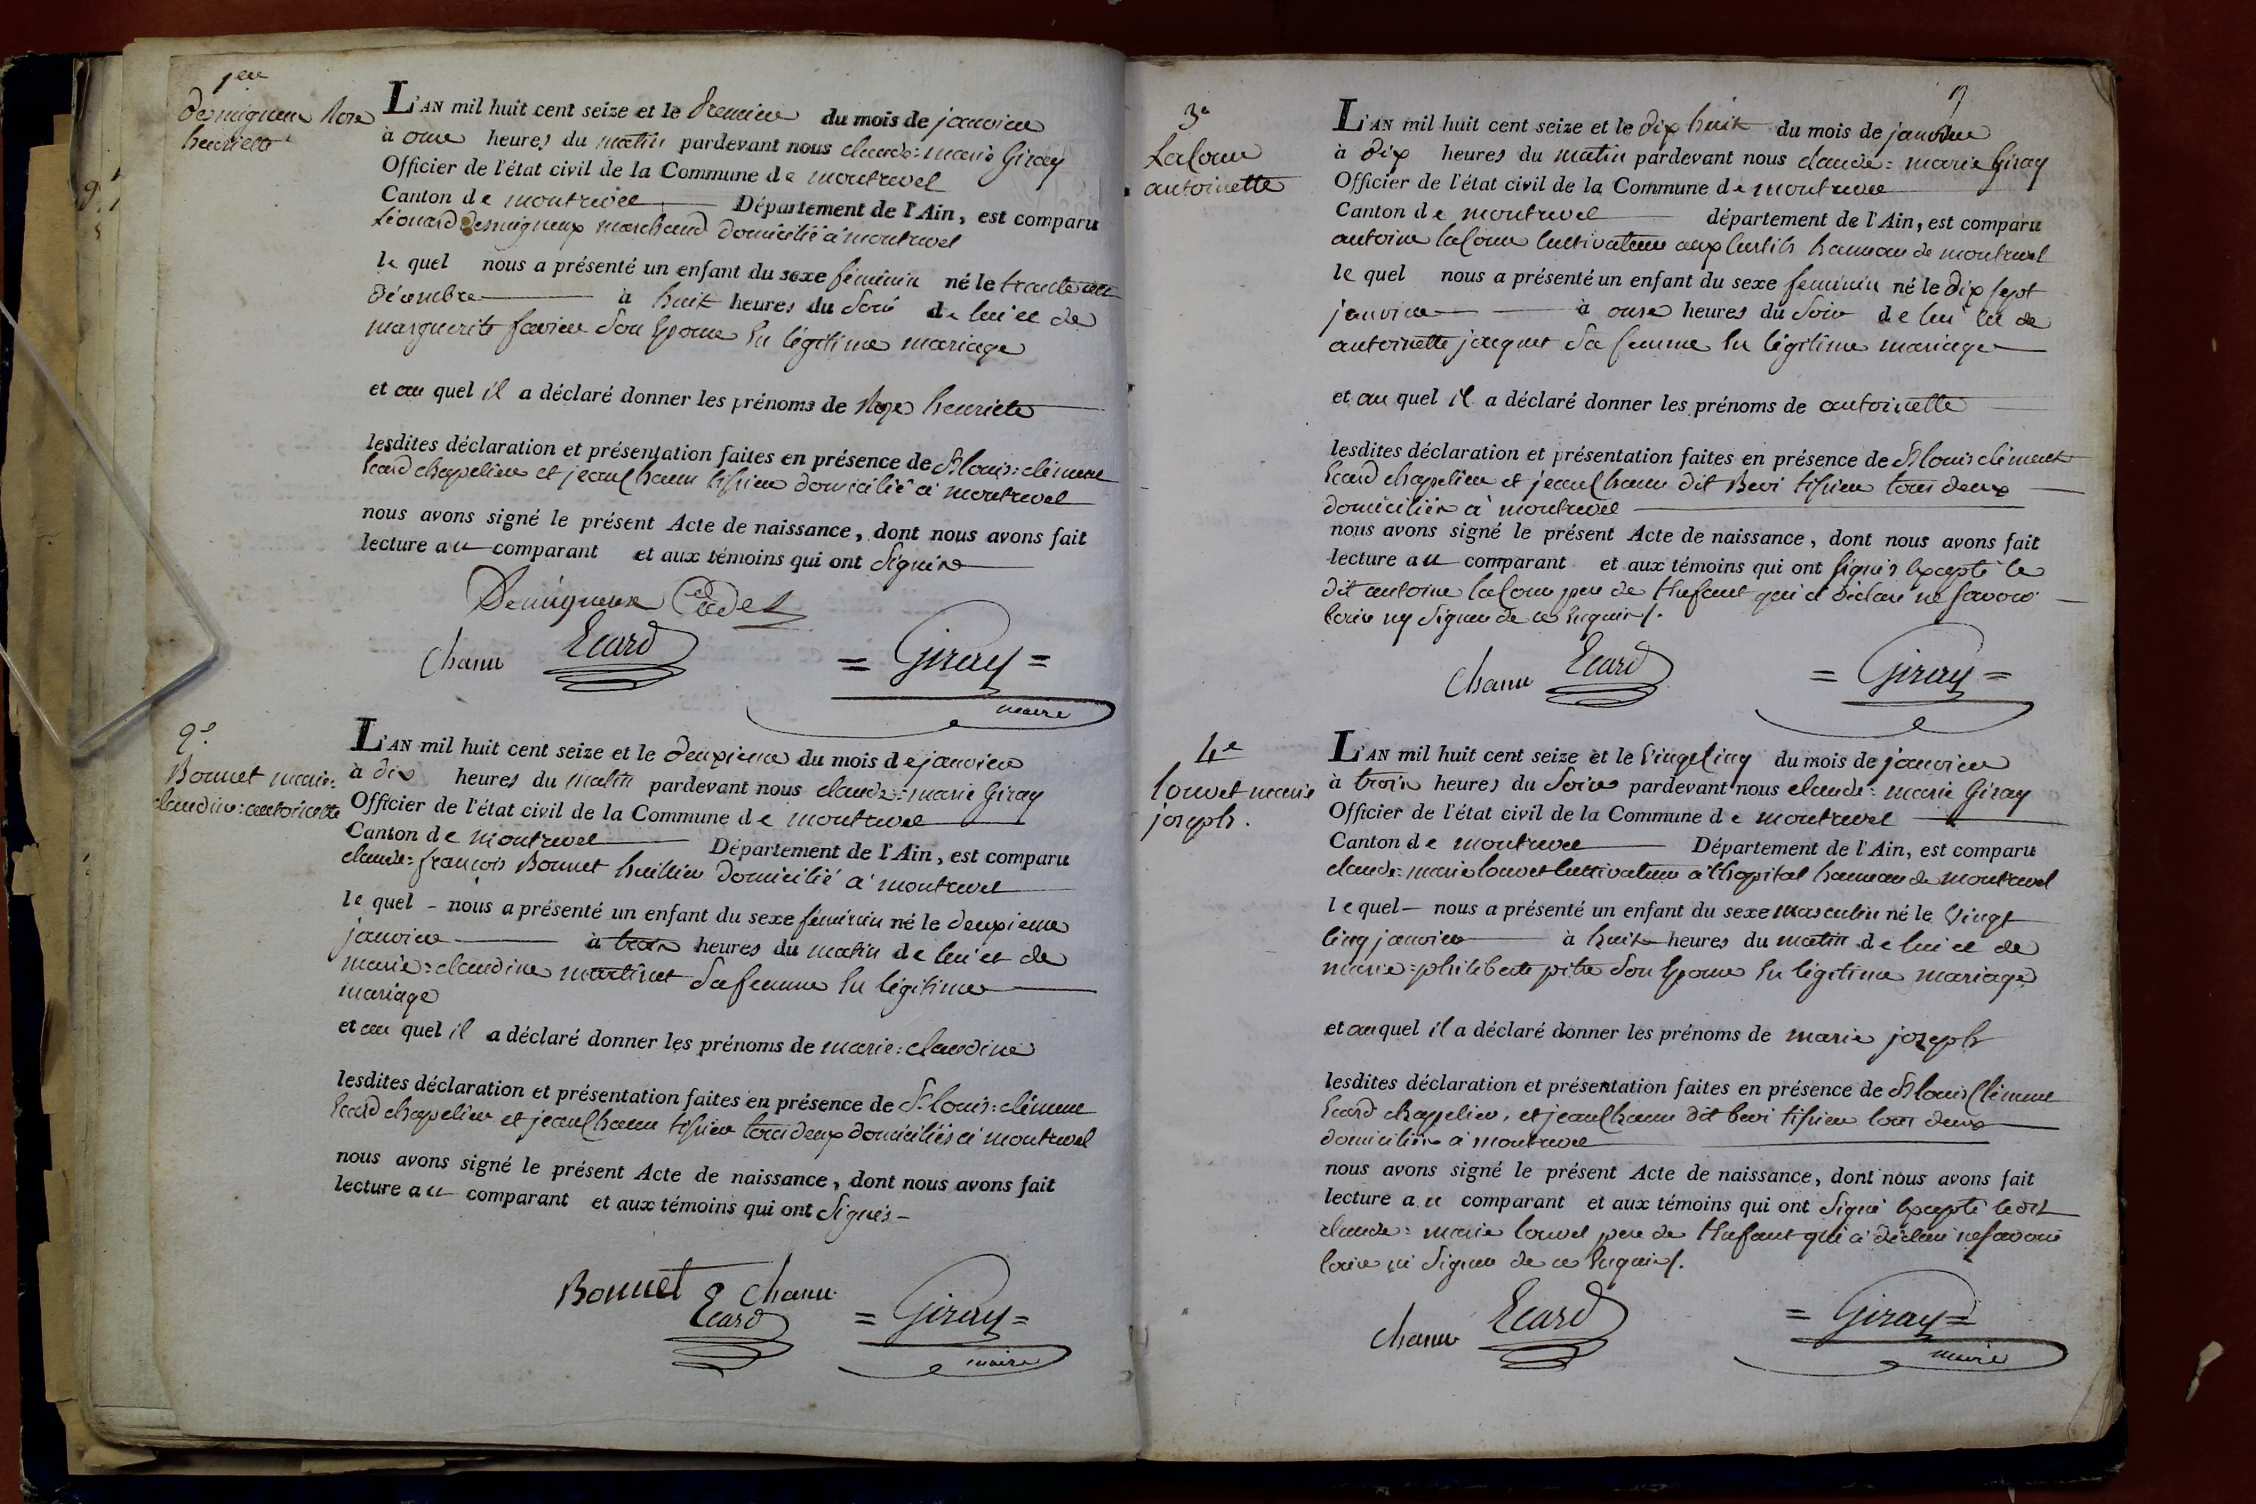 1ere
Desmigneux Rose
henriette
L'AN mil huit cent seize et le Premier du mois de janvier
à onze heures du matin pardevant nous claude=marie Giray
Officier de l'état civil de la Commune de montrevel
Canton de montrevel Département de l'Ain, est comparu
Léonard Desmigneux marchand domicilié à montrevel
le quel nous a présenté un enfant du sexe féminin né le trente un
décembre à huit heures du Soir de lui et de
marguerite favier Son Epouse En légitime mariage
et au quel il a déclaré donner les prénoms de Rose henriete
lesdites déclaration et présentation faites en présence de Sr louis=clément
Ecard chapelier et jean Chanu tissier domicilié à montrevel
nous avons signé le présent Acte de naissance, dont nous avons fait
lecture au comparant et aux témoins qui ont Signés
Demigneux
Chanu Ecard = Giray =
maire
2e
Bonnet marie=
claudine=antoinette
L'AN mil huit cent seize et le deuxieme du mois de janvier
à dix heures du matin pardevant nous claude=marie Giray
Officier de l'état civil de la Commune de montrevel
Canton de montrevel Département de l'Ain, est comparu
claude=françois Bonnet huillier domicilié à montrevel
le quel - nous a présenté un enfant du sexe féminin né le deuxieme
janvier à trois heures du matin de lui et de
marie=claudine martinet Sa femme En légitime
mariage
et au quel il a déclaré donner les prénoms de marie=claudine
lesdites déclaration et présentation faites en présence de Sr louis=clément
Ecard chapelier et jean Chanu tissier tous deux domiciliés à montrevel
nous avons signé le présent Acte de naissance, dont nous avons fait
lecture au comparant et aux témoins qui ont Signés
Bonnet Chanu
Ecard = Giray =
maire
3e
Laloue
antoinette
L'AN mil huit cent seize et le dix huit du mois de janvier
à dix heures du matin pardevant nous claude=marie Giray
Officier de l'état civil de la Commune de montrevel
Canton de montrevel département de l'Ain, est comparu
antoine laloue Cultivateur aux Curtils hameau de montrevel
le quel nous a présenté un enfant du sexe feminin né le dix sept
janvier à onze heures du Soir de lui et de
antoinette jacquet Sa femme En légitime mariage
et au quel il a déclaré donner les prénoms de antoinette
lesdites déclaration et présentation faites en présence de Sr louis clément
Ecard chapelier et jean Chanu dit Bevi tissier tous deux
domiciliés à montrevel
nous avons signé le présent Acte de naissance, dont nous avons fait
lecture au comparant et aux témoins qui ont Signés Excepté le
dit antoine laloue pere de l'Enfant qui a déclaré ne Savoir
Ecrire ny Signer de ce Enquis/.
Chanu Ecard = Giray =
4e
Louvet marie
joseph.
L'AN mil huit cent seize et le Vingt Cinq du mois de janvier
à trois heures du Soir pardevant nous claude=marie Giray
Officier de l'état civil de la Commune de montrevel
Canton de montrevel Département de l'Ain, est comparu
claude=marie louvet Cultivateur à l'hopital hameau de montrevel
le quel - nous a présenté un enfant du sexe masculin né le Vingt
Cinq janvier à huit heures du matin de lui et de
marie=philiberte pitre Son Epouse En légitime mariage
et au quel il a déclaré donner les prénoms de marie joseph
lesdites déclaration et présentation faites en présence de Sr louis Clément
Ecard chappelier, et jean Chanu dit bevi tissier tous deux
domiciliés à montrevel
nous avons signé le présent Acte de naissance, dont nous avons fait
lecture au comparant et aux témoins qui ont Signé Excepté ledit
claude=marie louvet pere de l'Enfant qui a déclaré ne Savoir
Ecrire ni Signer de ce Enquis/.
Chanu Ecard = Giray =
maire